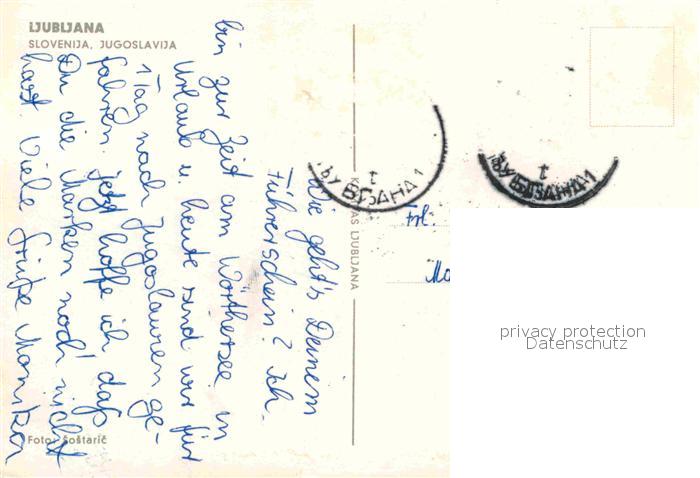 LJUBLJANA
SLOVENIJA, JUGOSLAVIJA
Wie geht's Deinem
Führerschein? Ich
bin zur Zeit am Wörthersee in
Urlaub u. heute sind wir für
1 Tag nach Jugoslawien ge-
fahren. Jetzt hoffe ich daß
Du die Marken noch nicht
hast. Viele Grüße Monika
Foto: Šoštarič
LJUBLJANA
Frl.
privacy protection
Datenschutz